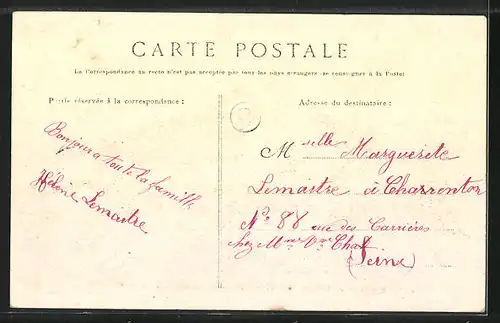 CARTE POSTALE
La Correspondance au recto n'est pas acceptée par tous les pays étrangers (se renseigner à la Poste)
Partie réservée à la correspondance :
Adresse du destinataire :
Bonjour a toute la famille
Hélène Lemaitre
Melle Marguerite
Lemaitre à Charenton
No 88 rue des Carrières
chez Mme Vve Chat
Seine